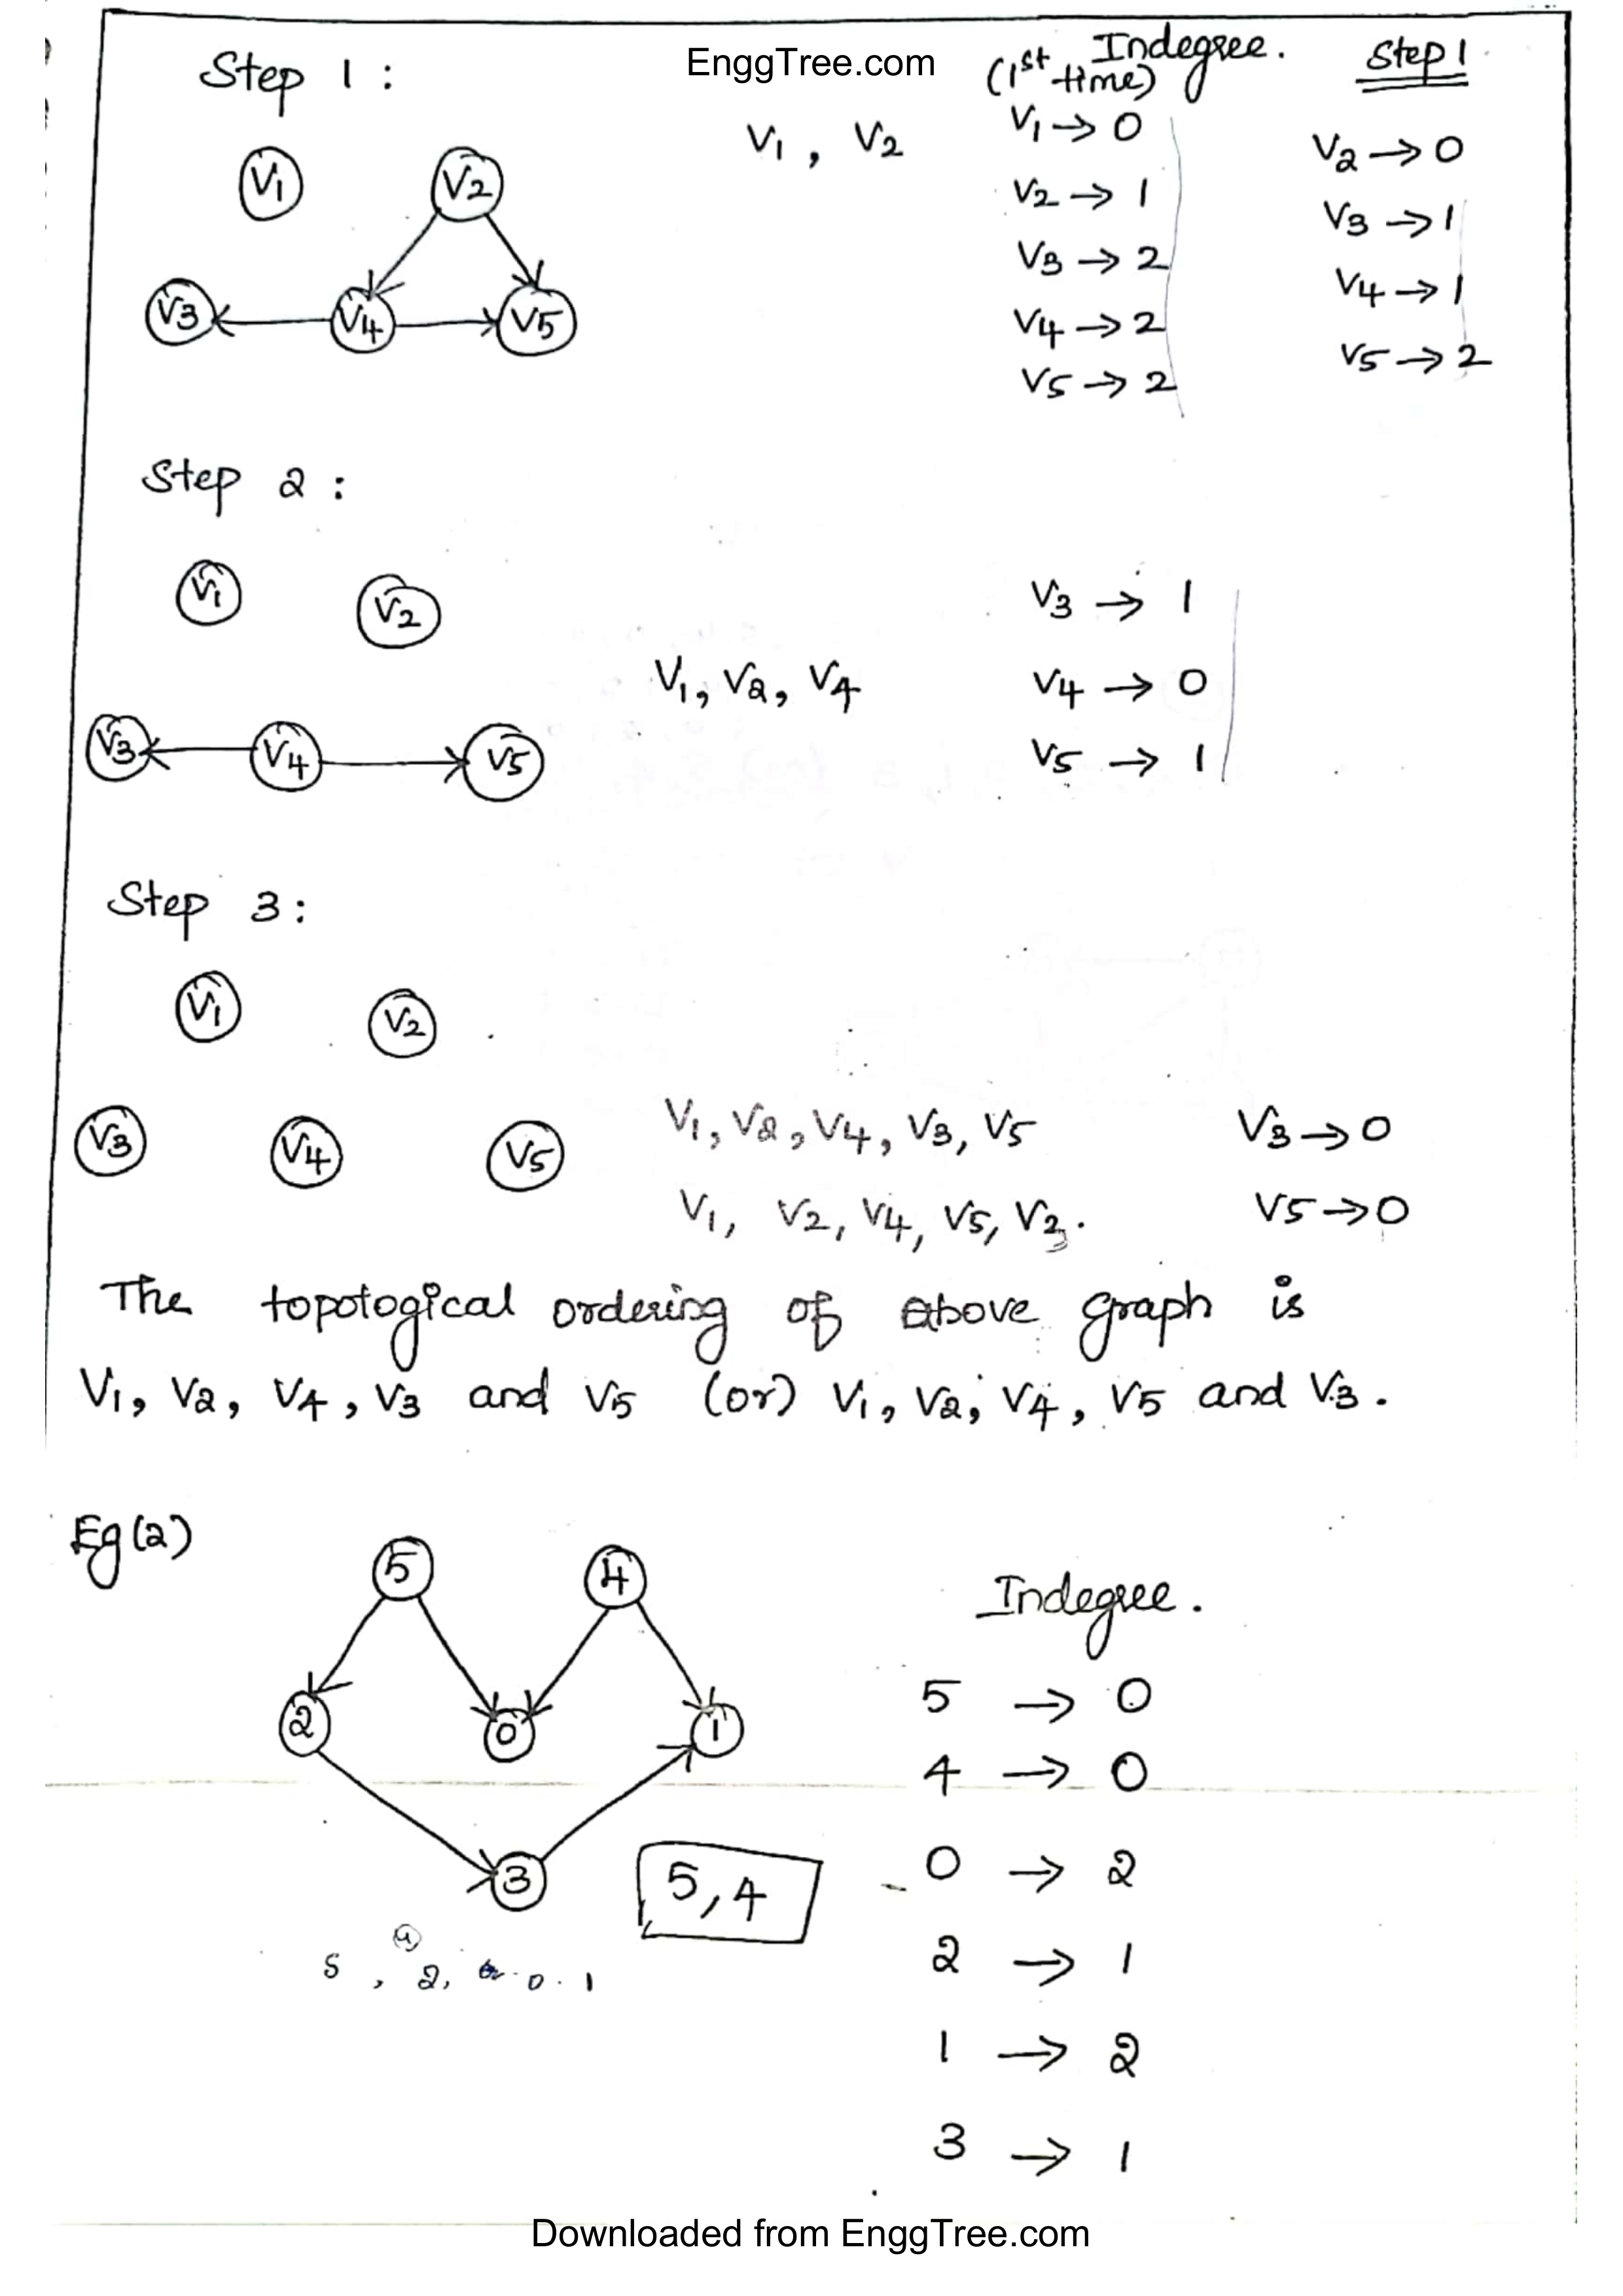 EnggTree.com
Step 1 :
Indegree.
(1st time)
Step 1
V1, V2
V1 → 0
V2 → 1
V3 → 2
V4 → 2
V5 → 2
V2 → 0
V3 → 1
V4 → 1
V5 → 2
V1 V2
V3 V4 V5
Step 2 :
V1 V2
V3 V4 V5
V1, V2, V4
V3 → 1
V4 → 0
V5 → 1
Step 3 :
V1 V2
V3 V4 V5
V1, V2, V4, V3, V5
V3 → 0
V1, V2, V4, V5, V3.
V5 → 0
The topological ordering of above graph is
V1, V2, V4, V3 and V5 (or) V1, V2, V4, V5 and V3.
Eg (2)
5 4
2 0 1
3
5, 4
4
5, 2, 0. 1
Indegree.
5 → 0
4 → 0
0 → 2
2 → 1
1 → 2
3 → 1
Downloaded from EnggTree.com